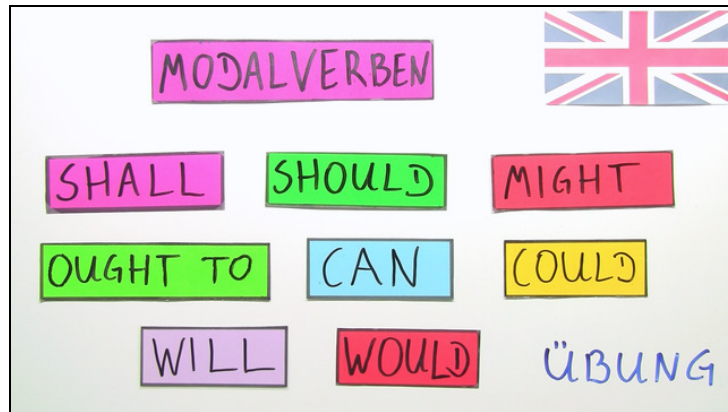 MODALVERBEN
SHALL SHOULD MIGHT
OUGHT TO CAN COULD
WILL WOULD ÜBUNG